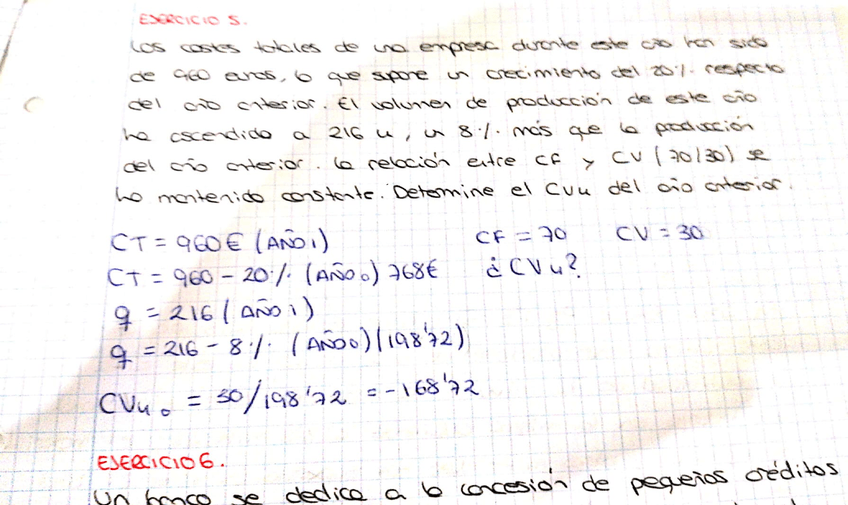 EJERCICIO 5.
Los costes totales de una empresa durante este año han sido
de 960 euros, lo que supone un crecimiento del 20% respecto
del año anterior. El volumen de producción de este año
ha ascendido a 216 u, un 8% más que la producción
del año anterior. La relación entre CF y CV (70/30) se
ha mantenido constante. Determine el CVu del año anterior.
CT = 960€ (AÑO 1) CF = 70 CV = 30
CT = 960 - 20% (AÑO 0) 768€ ¿CVu?
q = 216 (AÑO 1)
q = 216 - 8% (AÑO 0) (198'72)
CVu0 = 30/198'72 = -168'72
EJERCICIO 6.
Un banco se dedica a la concesión de pequeños créditos